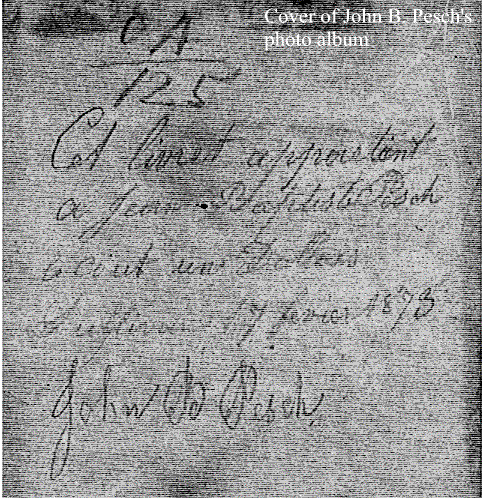 Cover of John B. Pesch's
photo album
CA
125
Cet livret apparetànt
a Jean-Baptiste Pesch
cout une Dollars
17 fevier 1873
John B Pesch